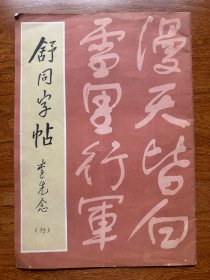 漫天皆白
雪里行軍
舒同字帖
李先念
(行)